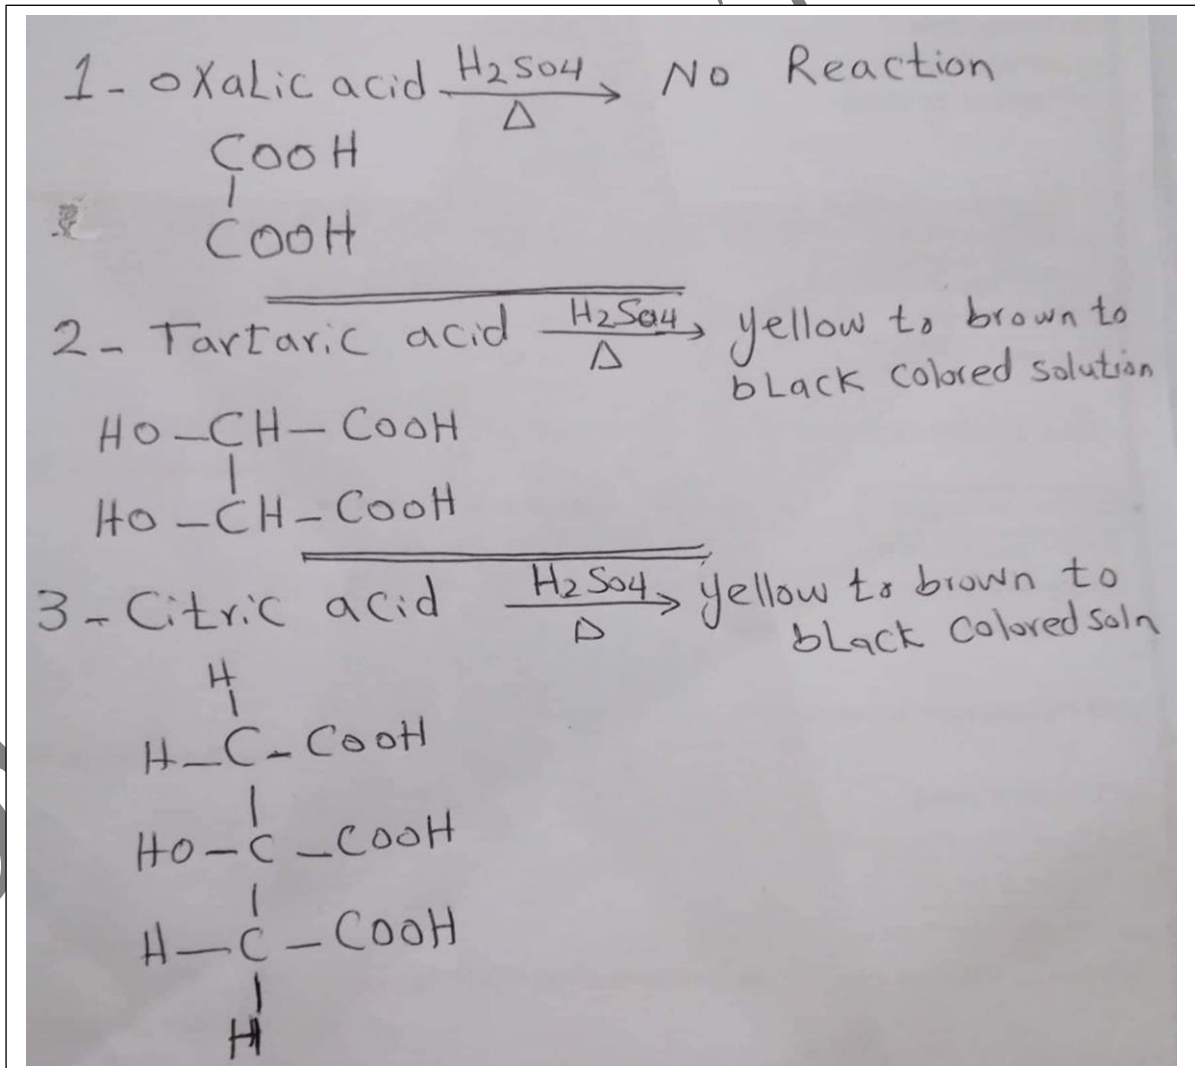 1- oxalic acid H2SO4 Δ → No Reaction
COOH
|
COOH
2- Tartaric acid H2SO4 Δ → yellow to brown to
black colored solution
HO-CH-COOH
|
HO-CH-COOH
3- Citric acid H2SO4 Δ → yellow to brown to
black colored soln
H
|
H-C-COOH
|
HO-C-COOH
|
H-C-COOH
|
H